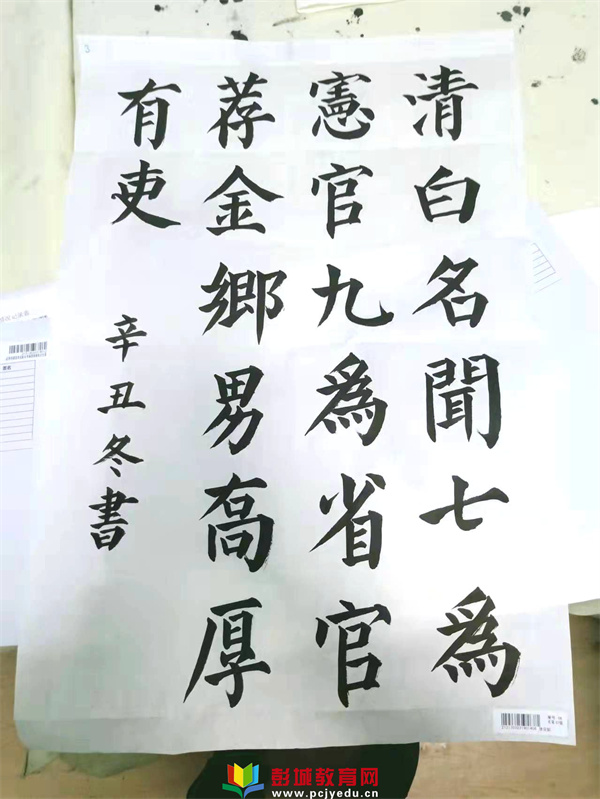 清白名聞七為
憲官九為省官
荐金鄉男高厚
有吏
辛丑冬書
3
彭城教育网
www.pcjyedu.cn